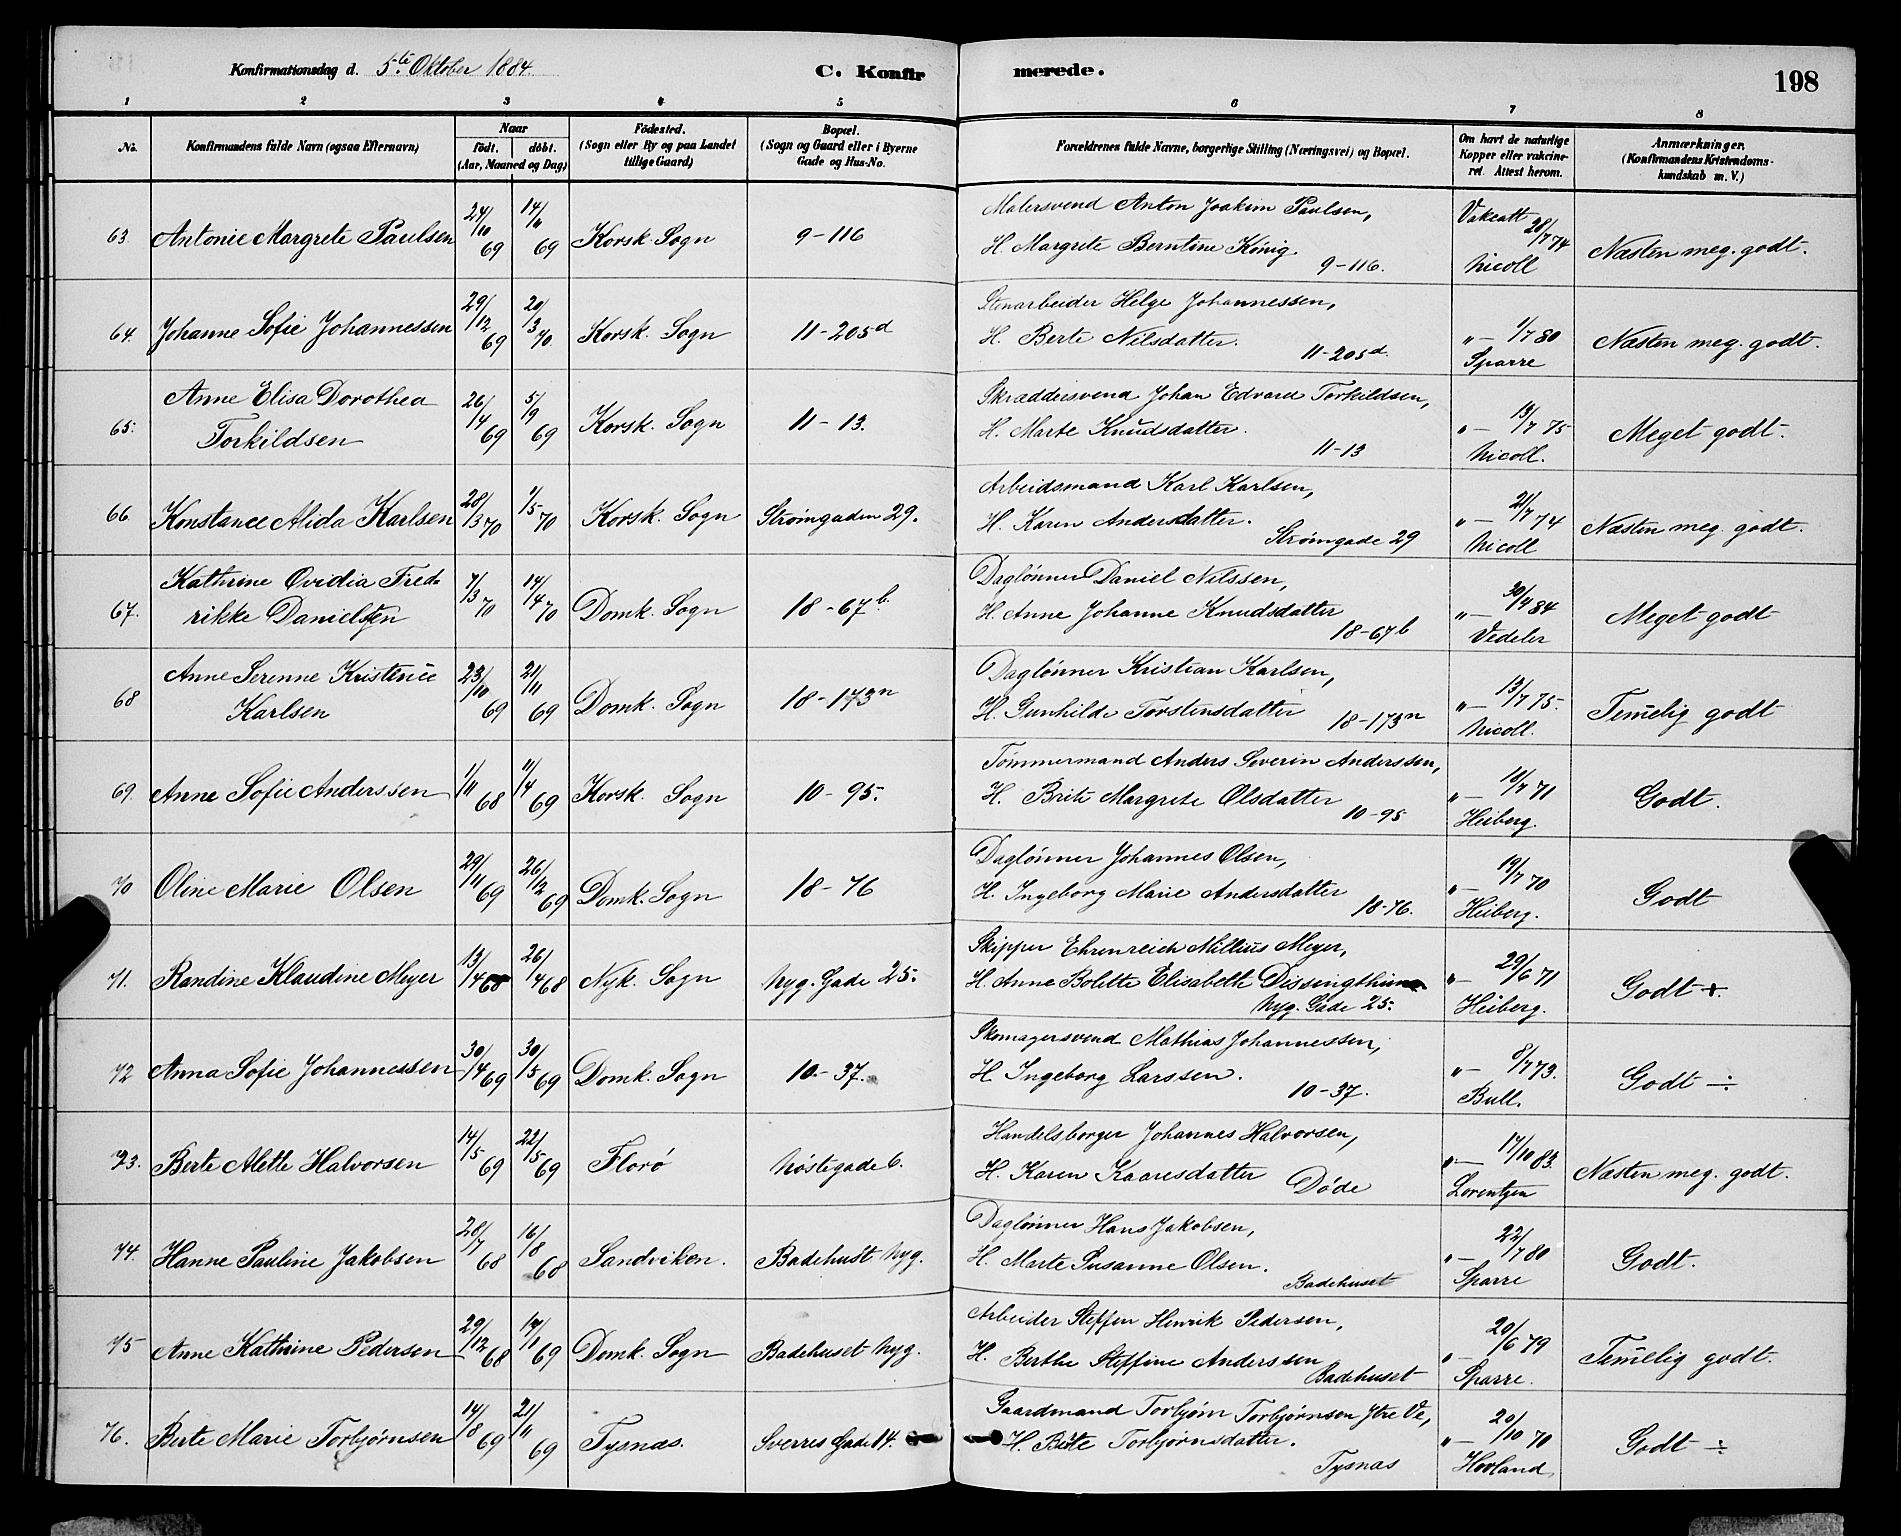 Konfirmationsdag d. 5te Oktober 1884
C. Konfirmerede.
198
1 2 3 4 5 6 7 8
No.
Konfirmandens fulde Navn (ogsaa Efternavn)
Naar
födt. döbt.
(Aar, Maaned og Dag)
Födested.
(Sogn eller By og paa Landet
tillige Gaard)
Bopæl.
(Sogn og Gaard eller i Byerne
Gade og Hus-No.
Forældrenes fulde Navne, borgerlige Stilling (Næringsvei) og Bopæl.
Om havt de naturlige
Kopper eller vakcine-
ret. Attest herom.
Anmærkninger.
(Konfirmandens Kristendoms-
kundskab m. V.)
63. Antonie Margrete Paulsen 24/10 69 14/11 69 Korsk. Sogn 9-116
Malersvend Anton Joakim Paulsen,
H. Margrete Berntine König
9-116.
Vakcatt 28/7 74
Nicoll
Næsten meg. godt.
64. Johanne Sofie Johannessen 29/12 69 20/3 70. Korsk. Sogn 11-205d
Stenarbeider Helge Johannessen,
H. Berte Nilsdatter.
11-205d.
"— 1/7 80
Sparre
Næsten meg. godt.
65. Anne Elisa Dorothea
Torkildsen 26/4 69 5/9 69 Korsk. Sogn 11-13.
Skræddersvend Johan Edvard Torkildsen,
H. Marte Knudsdatter.
11-13
"— 13/7 75
Nicoll.
Meget godt.
66. Konstance Alida Karlsen 28/3 70 1/5 70 Korsk. Sogn Strømgaden 29.
Arbeidsmand Karl Karlsen,
H. Karen Andersdatter.
Strømgade 29
"— 21/7 74
Nicoll
Næsten meg. godt.
67. Kathrine Ovidia Fred-
rikke Danielsen 7/3 70 14/4 70 Domk. Sogn 18-67b.
Daglønner Daniel Nilssen,
H. Anne Johanne Knudsdatter
18-67b
"— 30/9 84
Vedeler
Meget godt
68 Anne Serenne Kristine
Karlsen 23/10 69 21/11 69 Domk. Sogn 18-173n
Daglønner Kristian Karlsen,
H. Gunhilde Torstensdatter
18-173n
"— 13/7 75.
Nicoll.
Temelig godt
69. Anne Sofie Anderssen 1/11 68 11/4 69 Korsk. Sogn 10-95.
Tømmermand Anders Severin Anderssen,
H. Brite Margrete Olsdatter
10-95
"— 18/7 71
Heiberg.
Godt.
70 Oline Marie Olsen 29/11 69 26/12 69 Domk. Sogn 18-76
Daglønner Johannes Olsen,
H. Ingeborg Marie Andersdatter
18-76.
"— 19/7 70
Heiberg.
Godt
71. Randine Klaudine Meyer 13/4 68 26/4 68 Nyk. Sogn Nyg. Gade 25.
Skipper Ehrenreich Millius Meyer,
H. Anne Bolette Elisabeth
Nyg. Gade 25.
"— 29/6 71
Heiberg.
Godt +.
72 Anna Sofie Johannessen 30/4 69 30/5 69 Domk. Sogn 10-37.
Skomagersvend Mathias Johannessen,
H. Ingeborg Larssen.
10-37.
"— 8/7 73.
Bull.
Godt ÷
73. Berte Alette Halvorsen 14/5 69 22/5 69 Florø Nøstegade 6.
Handelsborger Johannes Halvorsen,
H. Karen Kaaresdatter
Døde
"— 17/10 83.
Lorentzen
Næsten meg. godt.
74. Hanne Pauline Jakobsen 28/7 68 16/8 68 Sandviken. Badehust Nyg.
Daglønner Hans Jakobsen,
H. Marte Susanne Olsen.
Badehuset
"— 22/7 80
Sparre
Godt.
75 Anne Kathrine Pedersen 29/12 68 17/1 69 Domk. Sogn Badehuset Nyg.
Arbeider Steffen Henrik Pedersen,
H. Berthe Steffine Anderssen
Badehuset
"— 20/6 79
Sparre.
Temelig godt.
76. Berte Marie Torbjørnsen 14/8 69 21/11 69 Tysnæs. Sverres Gade 14.
Gaardmand Torbjørn Torbjørnsen Ytre Ve,
H. Brite Torbjørnsdatter.
Tysnæs
"— 20/10 70
Hovland
Godt ÷